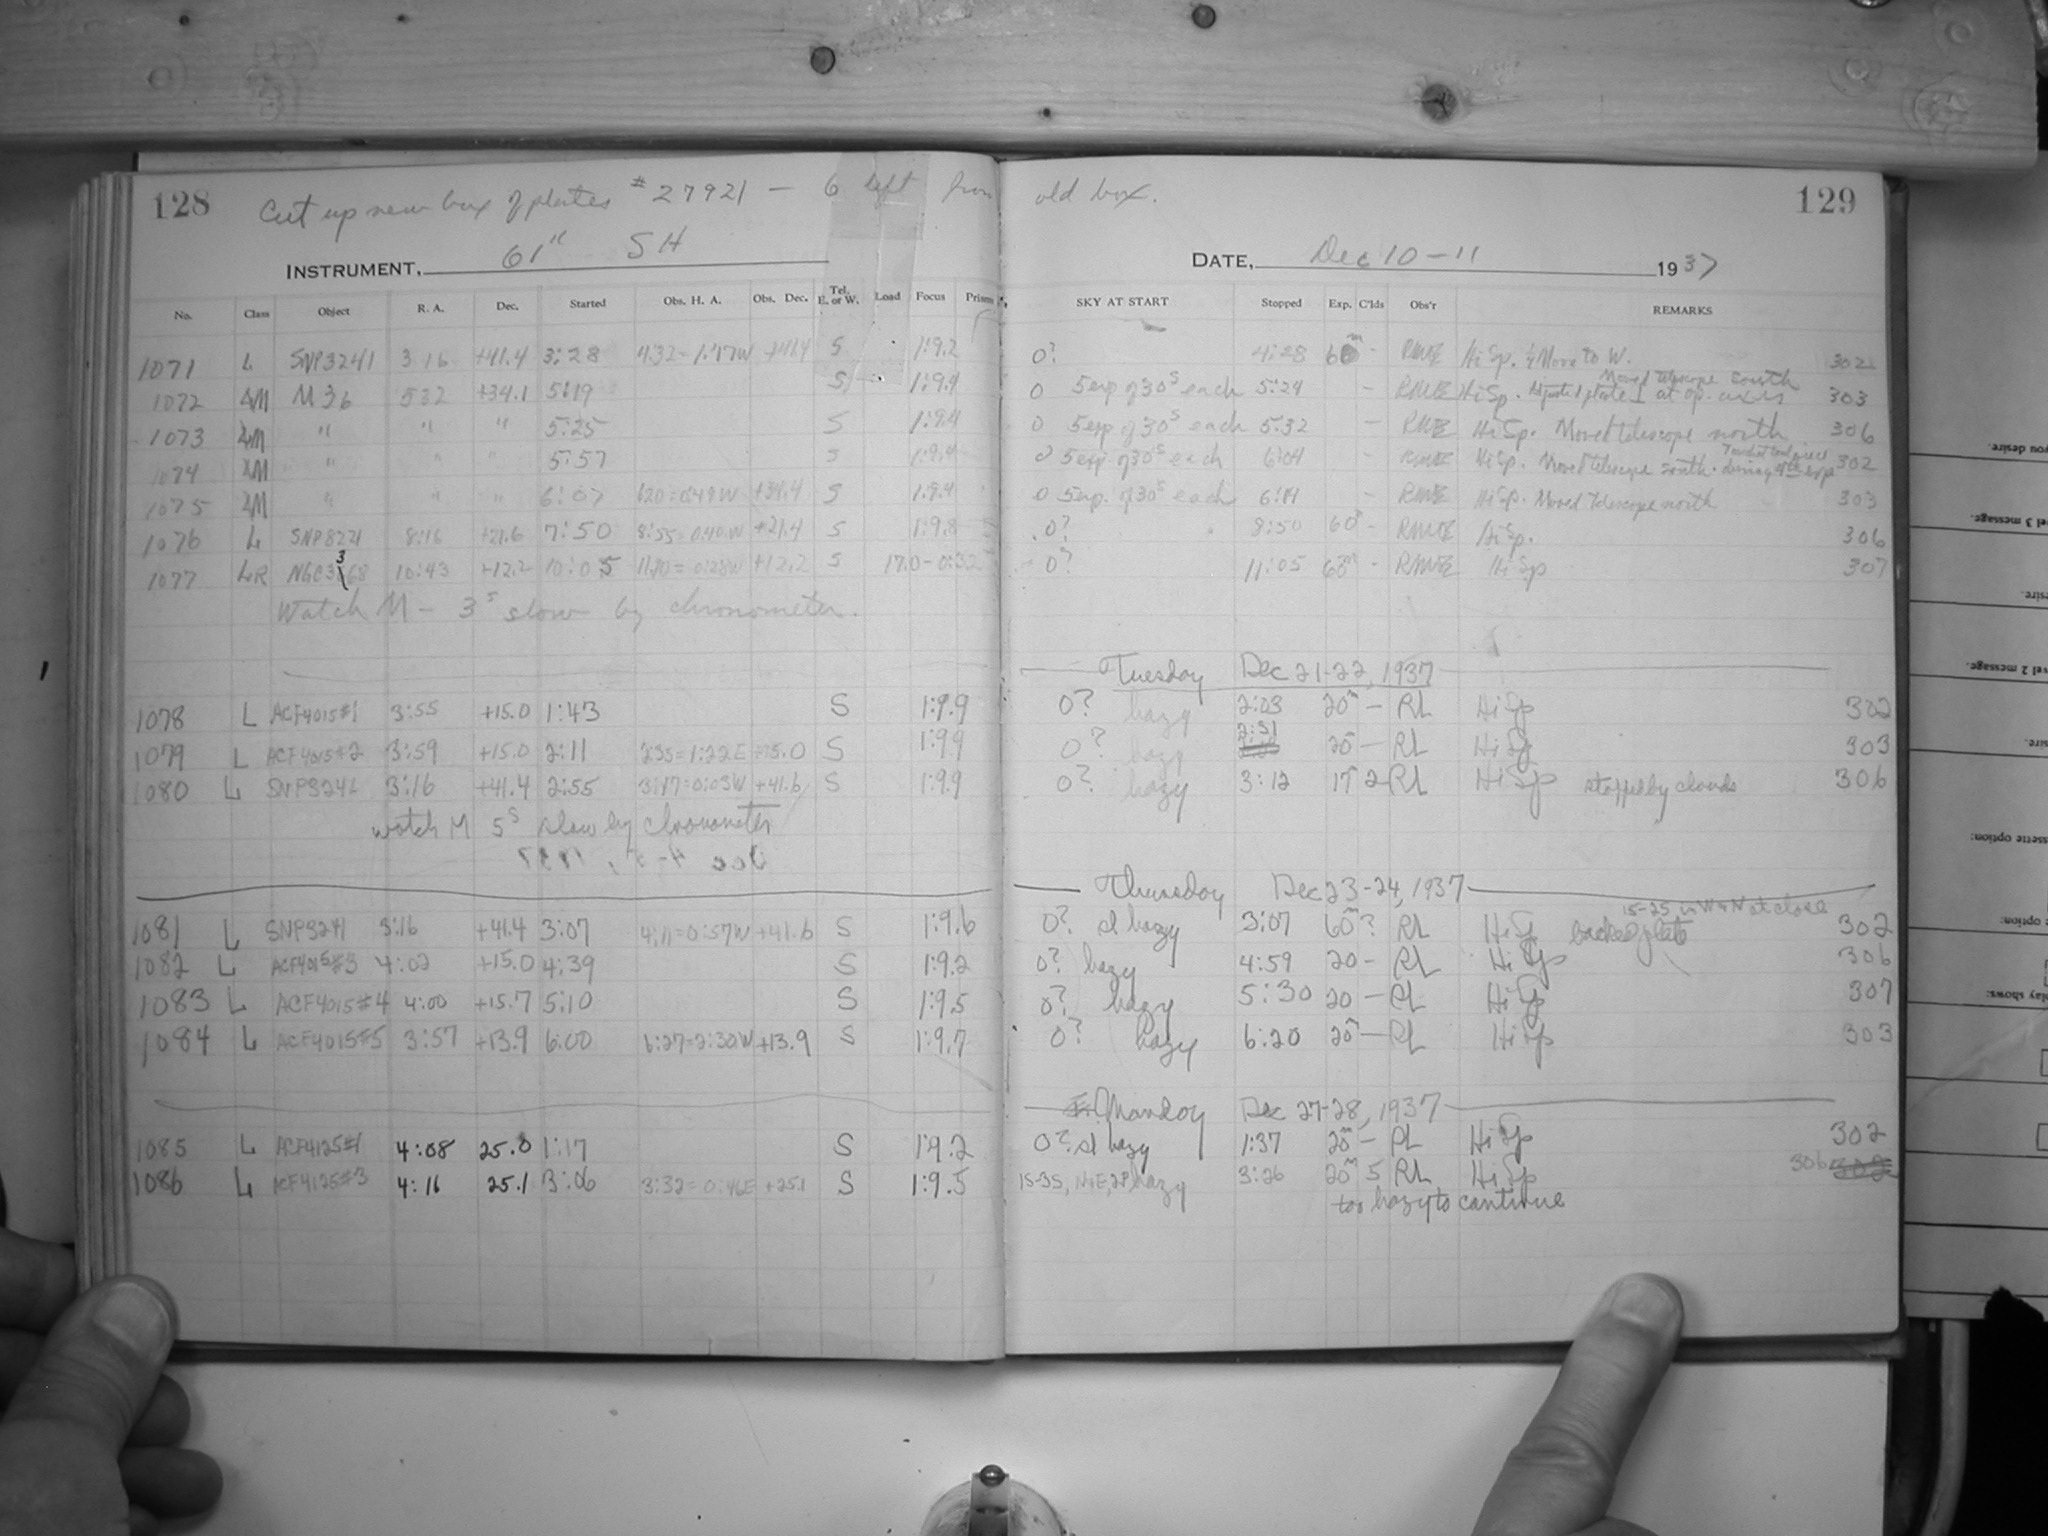 128 Cut up new box of plates #27921 — 6 left from old box. 129
INSTRUMENT, 61" SH DATE, Dec 10-11 1937
No. Class Object R. A. Dec. Started Obs. H. A. Obs. Dec. Tel. E. or W. Load Focus Prism SKY AT START Stopped Exp. C'lds Obs'r REMARKS
1071 L SNP3241 3:16 +41.4 3:28 4:32=1:17W +41.4 S 1:9.2 0? 4:28 60m - Hi Sp. Move to W. 302
1072 M M 36 532 +34.1 5:19 S 1:9.4 0 5 exp of 30s each 5:24 - Hi Sp. Adjusted plate at op. axis Moved telescope south 303
1073 M " " " 5:25 S 1:9.4 0 5 exp of 30s each 5:32 - Hi Sp. Moved telescope north 306
1074 M " " " 5:57 S 1:9.4 0 5 exp of 30s each 6:04 - Hi Sp. Moved telescope south. during 4th exp 302
1075 M " " " 6:07 620=0:49W +34.4 S 1:9.4 0 5 exp. of 30s each 6:14 - Hi Sp. Moved telescope north 303
1076 L SNP8221 8:16 +21.6 7:50 8:55=0:40W +21.4 S 1:9.8 0? 8:50 60m - Hi Sp. 306
1077 LR NGC3368 10:43 +12.2 10:05 11:10=0:28W +12.2 S 17.0-0:32 0? 11:05 60m - Hi Sp 307
Watch M - 3s slow by chronometer.
Tuesday Dec 21-22, 1937
1078 L ACF4015#1 3:55 +15.0 1:43 S 1:9.9 0? hazy 2:03 20m - RL Hi Sp 302
1079 L ACF4015#2 3:59 +15.0 2:11 2:35=1:22E +15.0 S 1:9.9 0? hazy 2:31 20 - RL Hi Sp 303
1080 L SNP3241 3:16 +41.4 2:55 3:17=0:03W +41.6 S 1:9.9 0? hazy 3:12 17m 2 RL Hi Sp stopped by clouds 306
watch M 5s slow by chronometer
Thursday Dec 23-24, 1937
1081 L SNP3241 3:16 +41.4 3:07 4:11=0:57W +41.6 S 1:9.6 0? sl hazy 3:07 60m ? RL Hi Sp backed plate 15-25 in W & N at close 302
1082 L ACF4015#3 4:02 +15.0 4:39 S 1:9.2 0? hazy 4:59 20 - RL Hi Sp 306
1083 L ACF4015#4 4:00 +15.7 5:10 S 1:9.5 0? hazy 5:30 20 - RL Hi Sp 307
1084 L ACF4015#5 3:57 +13.9 6:00 6:27=2:30W +13.9 S 1:9.7 0? hazy 6:20 20m - RL Hi Sp 303
Monday Dec 27-28, 1937
1085 L ACF4125#1 4:08 25.0 1:17 S 1:9.2 0? sl hazy 1:37 20m - RL Hi Sp 302
1086 L ACF4125#3 4:16 25.1 3:06 3:32=0:46E +25.1 S 1:9.5 1S-3S, N+E, hazy 3:26 20m 5 RL Hi Sp 306
too hazy to continue